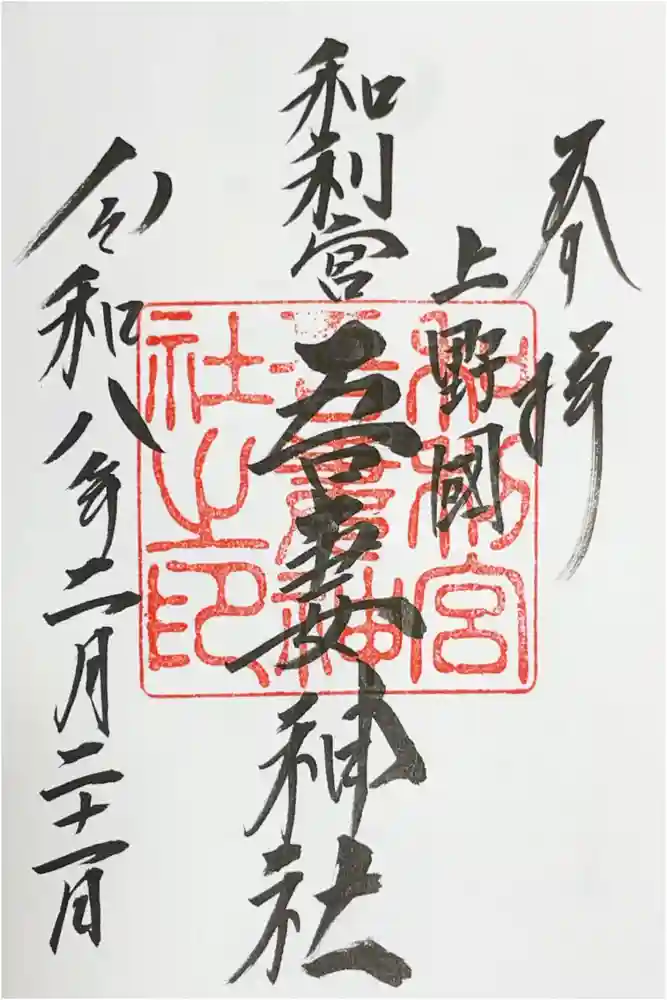 奉拝
上野國
和利宮
吾妻神社
令和八年二月二十一日
和利宮
吾妻神
社之印